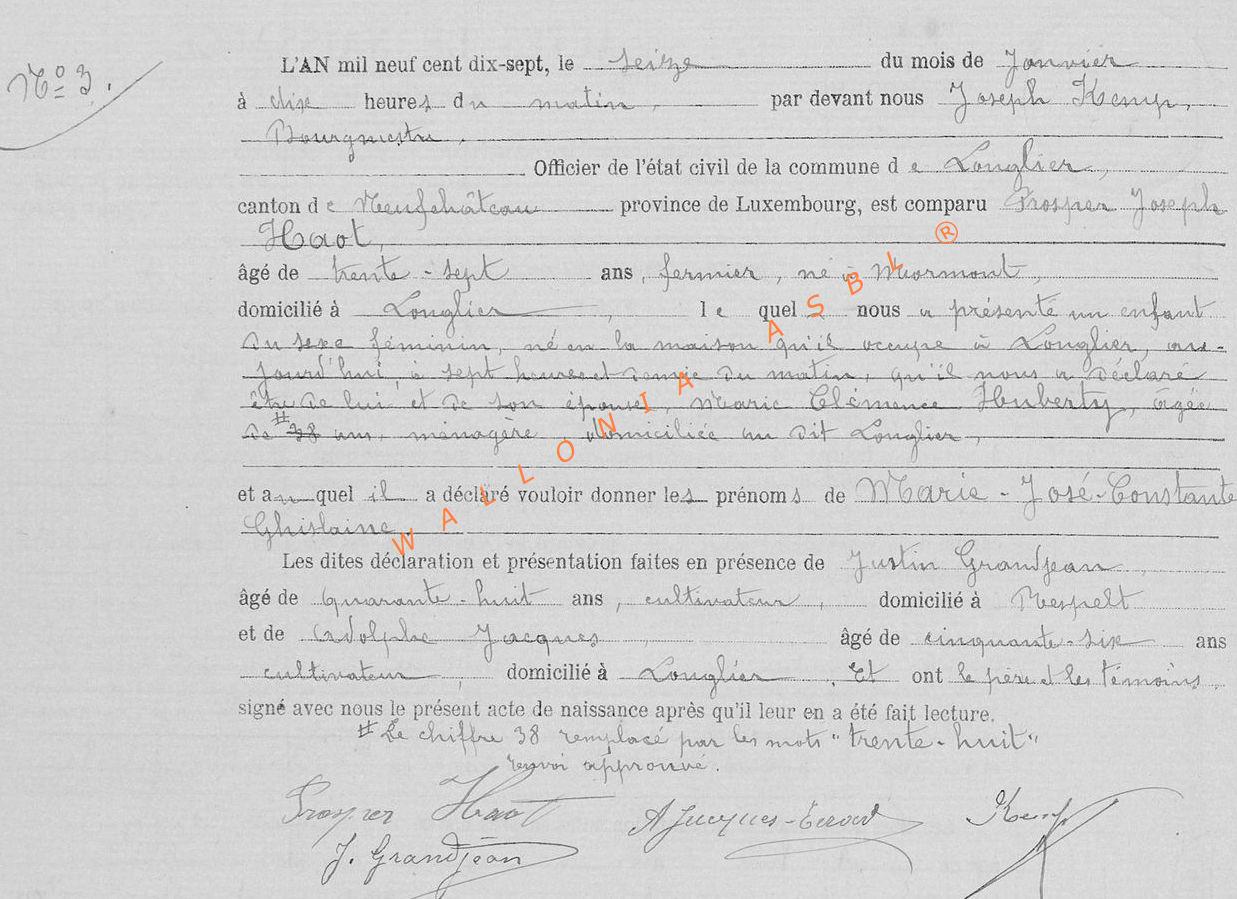 Nº 3.
L'AN mil neuf cent dix-sept, le seize du mois de Janvier
à dix heures du matin, par devant nous Joseph Kemp,
Bourgmestre,
Officier de l'état civil de la commune de Longlier,
canton de Neufchâteau province de Luxembourg, est comparu Prosper Joseph
Haot,
âgé de trente-sept ans, fermier, né à Mormont,
domicilié à Longlier, lequel nous a présenté un enfant
du sexe féminin, né en la maison qu'il occupe à Longlier, au-
jourd'hui, à sept heures et demie du matin, qu'il nous a déclaré
être de lui et de son épouse, Marie Clémence Huberty, agée
de # 38 ans, ménagère, domiciliée au dit Longlier,
et auquel il a déclaré vouloir donner les prénoms de Marie-José-Constante
Ghislaine.
Les dites déclaration et présentation faites en présence de Justin Grandjean
âgé de quarante-huit ans, cultivateur, domicilié à Respelt
et de Adolphe Jacques âgé de cinquante-six ans
cultivateur, domicilié à Longlier. Et ont le père et les témoins,
signé avec nous le présent acte de naissance après qu'il leur en a été fait lecture.
# Le chiffre 38 remplacé par les mots "trente-huit"
renvoi approuvé.
Prosper Haot A Jacques- Kemp
J. Grandjean
WALLONIA ASBL ®